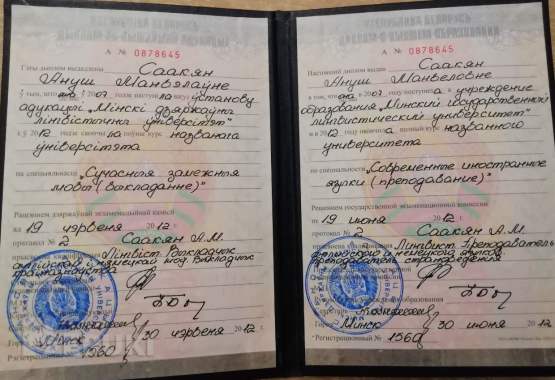 А № 0878645
Гэты дыплом выдадзены Саакян
Ануш Манвэлаўне
у тым, што 2007 годзе паступіла ва установу
адукацыі „Мінскі дзяржаўны
лінгвістычны ўніверсітэт"
і ў 2012 годзе скончыла поўны курс названага
ўніверсітэта
па спецыяльнасці „Сучасныя замежныя
мовы (выкладанне)"
Рашэннем дзяржаўнай экзаменацыйнай камісіі
ад 19 чэрвеня 2012 г.
пратакол № 2 Саакян А.М.
Лінгвіст. Выкладчык
нямецкай моў. Выкладчык
30 чэрвеня 2012 г.
1560
А № 0878645
Настоящий диплом выдан Саакян
Ануш Манвеловне
в том, что 2007 году поступила в учреждение
образования „Минский государственный
лингвистический университет"
и в 2012 году окончила полный курс названного
университета
по специальности „Современные иностранные
языки (преподавание)"
Решением государственной экзаменационной комиссии
от 19 июня 2012 г.
протокол № 2 Саакян А.М.
Лингвист. Преподаватель
и немецкого языков.
Преподаватель
Город Минск 30 июня 2012 г.
Регистрационный № 1560